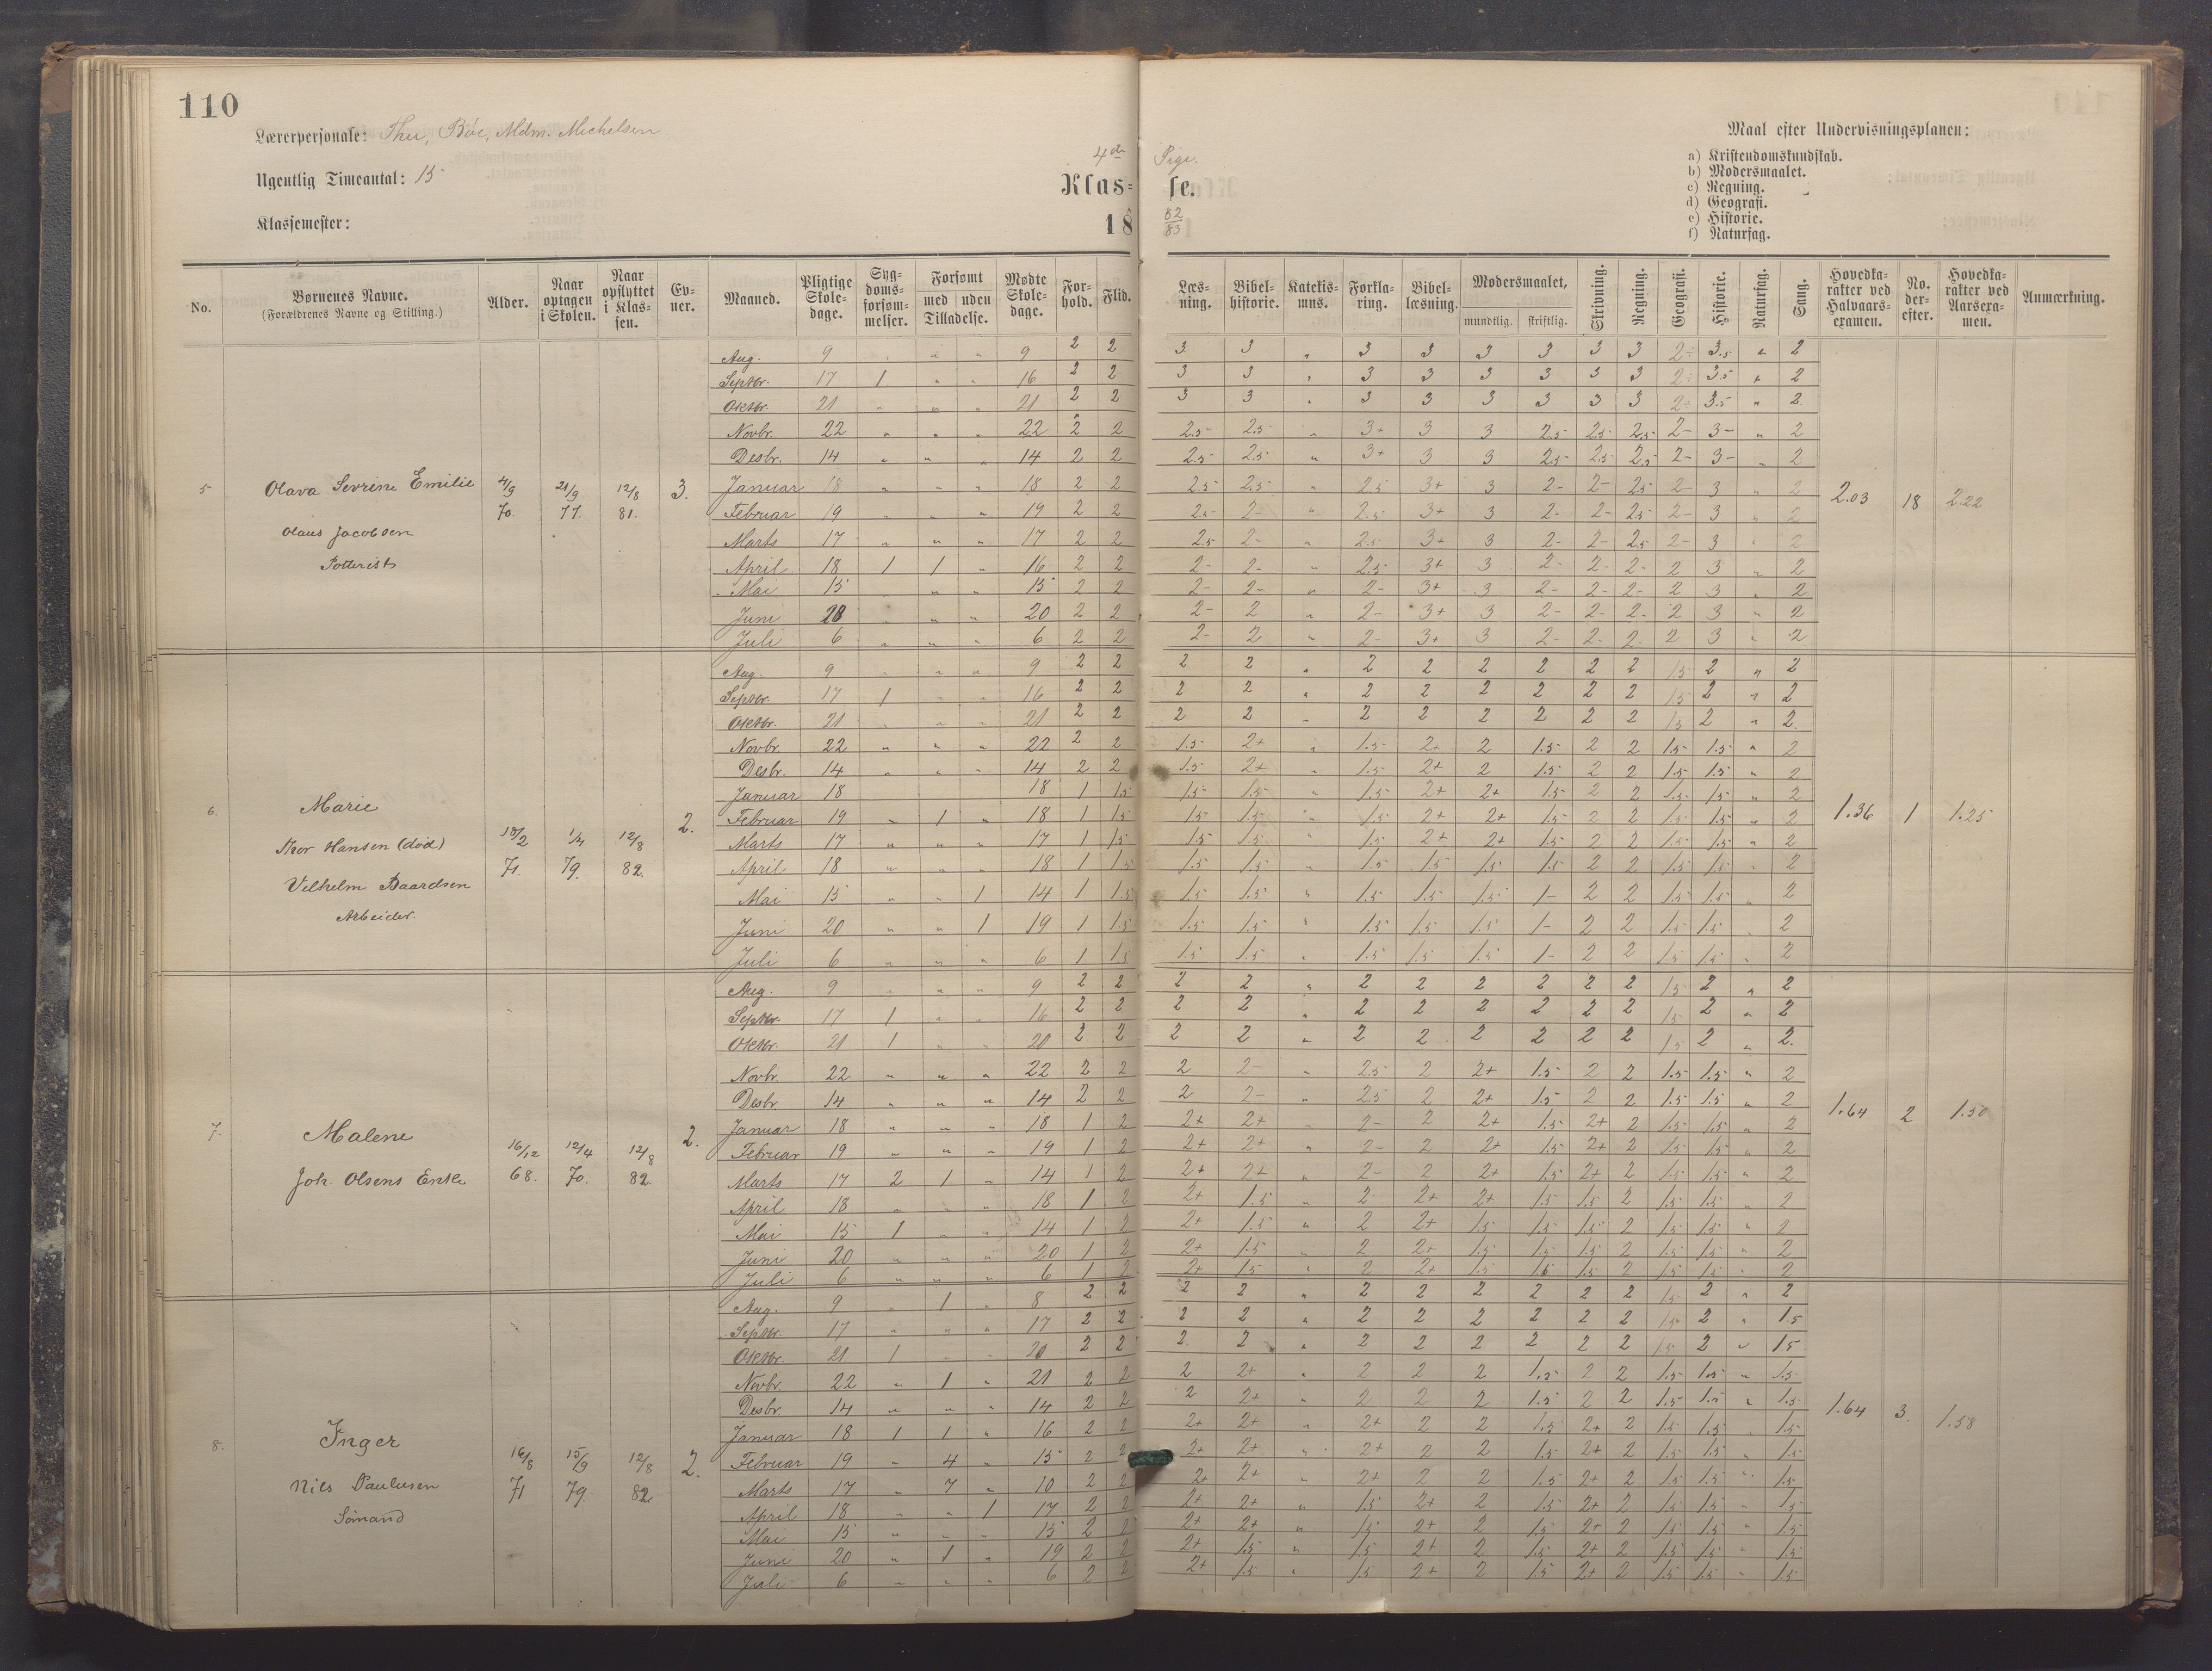 110
Lærerpersonale: Thu, Bøe, Mdm. Michelsen
Ugentlig Timeantal: 15
Klassemester:
4de Pige.
Klasse.
18 82/83
Maal efter Undervisningsplanen:
a) Kristendomskundskab.
b) Modersmaalet.
c) Regning.
d) Geografi.
e) Historie.
f) Naturfag.
No. Børnenes Navne. (Forældrenes Navne og Stilling.) Alder. Naar optagen i Skolen. Naar opflyttet i Klassen. Evner. Maaned. Pligtige Skoledage. Sygdomsforsømmelser. Forsømt med uden Tilladelse. Mødte Skoledage. Forhold. Flid. Læsning. Bibelhistorie. Katekismus. Forklaring. Bibellæsning. Modersmaalet, mundtlig. skriftlig. Skrivning. Regning. Geografi. Historie. Naturfag. Sang. Hovedkarakter ved Halvaarsexamen. No. derefter. Hovedkarakter ved Aarsexamen. Anmærkning.
5 Olava Sevrine Emilie 4/9 70. 21/9 77. 12/8 81. 3. 2.03 18 2.22
Olaus Jacobsen
Potterist
Aug. 9 " " " 9 2 2 3 3 " 3 3 3 3 3 3 2÷ 3.5 " 2
Septbr. 17 1 " " 16 2 2 3 3 " 3 3 3 3 3 3 2÷ 3.5 " 2
Oktbr. 21 " " " 21 2 2 3 3 " 3 3 3 3 3 3 2÷ 3.5 " 2.
Novbr. 22 " " " 22 2 2 2.5 2.5 " 3+ 3 3 2.5 2.5 2.5 2- 3- " 2
Desbr. 14 " " " 14 2 2 2.5 2.5 " 3+ 3 3 2.5 2.5 2.5 2- 3- " 2
Januar 18 " " " 18 2 2 2.5 2.5 " 2.5 3+ 3 2- 2- 2.5 2- 3 " 2
Februar 19 " " " 19 2 2 2.5 2- " 2.5 3+ 3 2- 2- 2.5 2- 3 " 2
Marts 17 " " " 17 2 2 2.5 2- " 2.5 3+ 3 2- 2- 2.5 2- 3 " 2
April 18 1 1 " 16 2 2 2- 2- " 2.5 3+ 3 2- 2- 2- 2 3 " 2
Mai 15 " " " 15 2 2 2- 2- " 2- 3+ 3 2- 2- 2- 2 3 " 2
Juni 20 " " " 20 2 2 2- 2 " 2- 3+ 3 2- 2- 2- 2 3 " 2
Juli 6 " " " 6 2 2 2- 2 " 2- 3+ 3 2- 2- 2- 2 3 " 2
6. Marie 18/2 71. 1/4 79. 12/8 82. 2. 1.36 1 1.25
Hansen (død)
Vilhelm Baardsen
Arbeider.
Aug. 9 " " " 9 2 2 2 2 " 2 2 2 2 2 2 1.5 2 " 2
Septbr. 17 1 " " 16 2 2 2 2 " 2 2 2 2 2 2 1.5 2 " 2
Oktbr. 21 " " " 21 2 2 2 2 " 2 2 2 2 2 2 1.5 2 " 2.
Novbr. 22 " " " 22 2 2 1.5 2+ " 1.5 2+ 2 1.5 2 2 1.5 1.5 " 2
Desbr. 14 " " " 14 2 2 1.5 2+ " 1.5 2+ 2 1.5 2 2 1.5 1.5 " 2
Januar 18 18 1 1.5 1.5 1.5 " 1.5 2+ 2+ 1.5 2 2 1.5 1.5 " 2
Februar 19 " 1 " 18 1 1.5 1.5 1.5 " 1.5 2+ 2+ 1.5 2 2 1.5 1.5 " 2
Marts 17 " " " 17 1 1.5 1.5 1.5 " 1.5 2+ 2+ 1.5 2 2 1.5 1.5 " 2
April 18 " " " 18 1 1.5 1.5 1.5 " 1.5 1.5 1.5 1.5 2 2 1.5 1.5 " 2
Mai 15 " " 1 14 1 1.5 1.5 1.5 " 1.5 1.5 1.5 1- 2 2 1.5 1.5 " 2
Juni 20 " " 1 19 1 1.5 1.5 1.5 " 1.5 1.5 1.5 1- 2 2 1.5 1.5 " 2
Juli 6 " " " 6 1 1.5 1.5 1.5 " 1.5 1.5 1.5 1- 2 2 1.5 1.5 " 2
7. Malene 16/12 68. 12/4 70. 12/8 82. 2. 1.64 2 1.50
Joh. Olsens Enke
Aug. 9 " " " 9 2 2 2 2 " 2 2 2 2 2 2 1.5 2 " 2
Septbr. 17 1 " " 16 2 2 2 2 " 2 2 2 2 2 2 1.5 2 " 2
Oktbr. 21 1 " " 20 2 2 2 2 " 2 2 2 2 2 2 1.5 2 " 2.
Novbr. 22 " " " 22 2 2 2 2- " 2.5 2 2+ 1.5 2 2 1.5 1.5 " 2
Desbr. 14 " " " 14 2 2 2 2- " 2.5 2 2+ 1.5 2 2 1.5 1.5 " 2
Januar 18 " " " 18 1 2 2+ 2+ " 2- 2 2+ 1.5 2+ 2 1.5 1.5 " 2
Februar 19 " " " 19 1 2 2+ 2+ " 2- 2 2+ 1.5 2+ 2 1.5 1.5 " 2
Marts 17 2 1 " 14 1 2 2+ 2+ " 2- 2 2+ 1.5 2+ 2 1.5 1.5 " 2
April 18 " " " 18 1 2 2+ 1.5 " 2 2+ 2+ 1.5 1.5 2 1.5 1.5 " 2
Mai 15 1 " " 14 1 2 2+ 1.5 " 2 2+ 1.5 1.5 1.5 2 1.5 1.5 " 2
Juni 20 " " " 20 1 2 2+ 1.5 " 2 2+ 1.5 1.5 1.5 2 1.5 1.5 " 2
Juli 6 " " " 6 1 2 2+ 1.5 " 2 2+ 1.5 1.5 1.5 2 1.5 1.5 " 2
8. Inger 16/8 71 15/9 79. 12/8 82 2. 1.64 3. 1.58
Nils Paulusen
Sømand
Aug. 9 " 1 " 8 2 2 2 2 " 2 2 2 2 2 2 1.5 2 " 2
Septbr. 17 " " " 17 2 2 2 2 " 2 2 2 2 2 2 1.5 2 " 1.5
Oktbr. 21 1 " " 20 2 2 2. 2 " 2 2 2 2 2 2 1.5 2 " 1.5
Novbr. 22 " 1 " 21 2 2 2 2+ " 2 2 2 1.5 2 2 1.5 1.5 " 1.5
Desbr. 14 " " " 14 2 2 2 2+ " 2 2 2 1.5 2 2 1.5 1.5 " 1.5
Januar 18 1 1 " 16 2 2 2+ 2+ " 2+ 2 2 1.5 2+ 2 1.5 1.5 " 1.5
Februar 19 " 4 " 15 2 2 2+ 2+ " 2+ 2 2 1.5 2+ 2 1.5 1.5 " 1.5
Marts 17 " 7 " 10 2 2 2+ 2+ " 2+ 2 2 1.5 2+ 2 1.5 1.5 " 1.5
April 18 " " 1 17 2 2 2+ 2+ " 1.5 2+ 2 1.5 2+ 2 1.5 1.5 " 1.5
Mai 15 " " " 15 2 2 2+ 2+ " 1.5 2+ 2 1.5 2+ 2 1.5 1.5 " 1.5
Juni 20 " 1 " 19 2 2 2+ 1.5 " 1.5 2+ 2 1.5 2+ 2 1.5 1.5 " 1.5
Juli 6 " " " 6 2 2 2+ 1.5 " 1.5 2+ 2 1.5 2+ 2 1.5 1.5 " 1.5